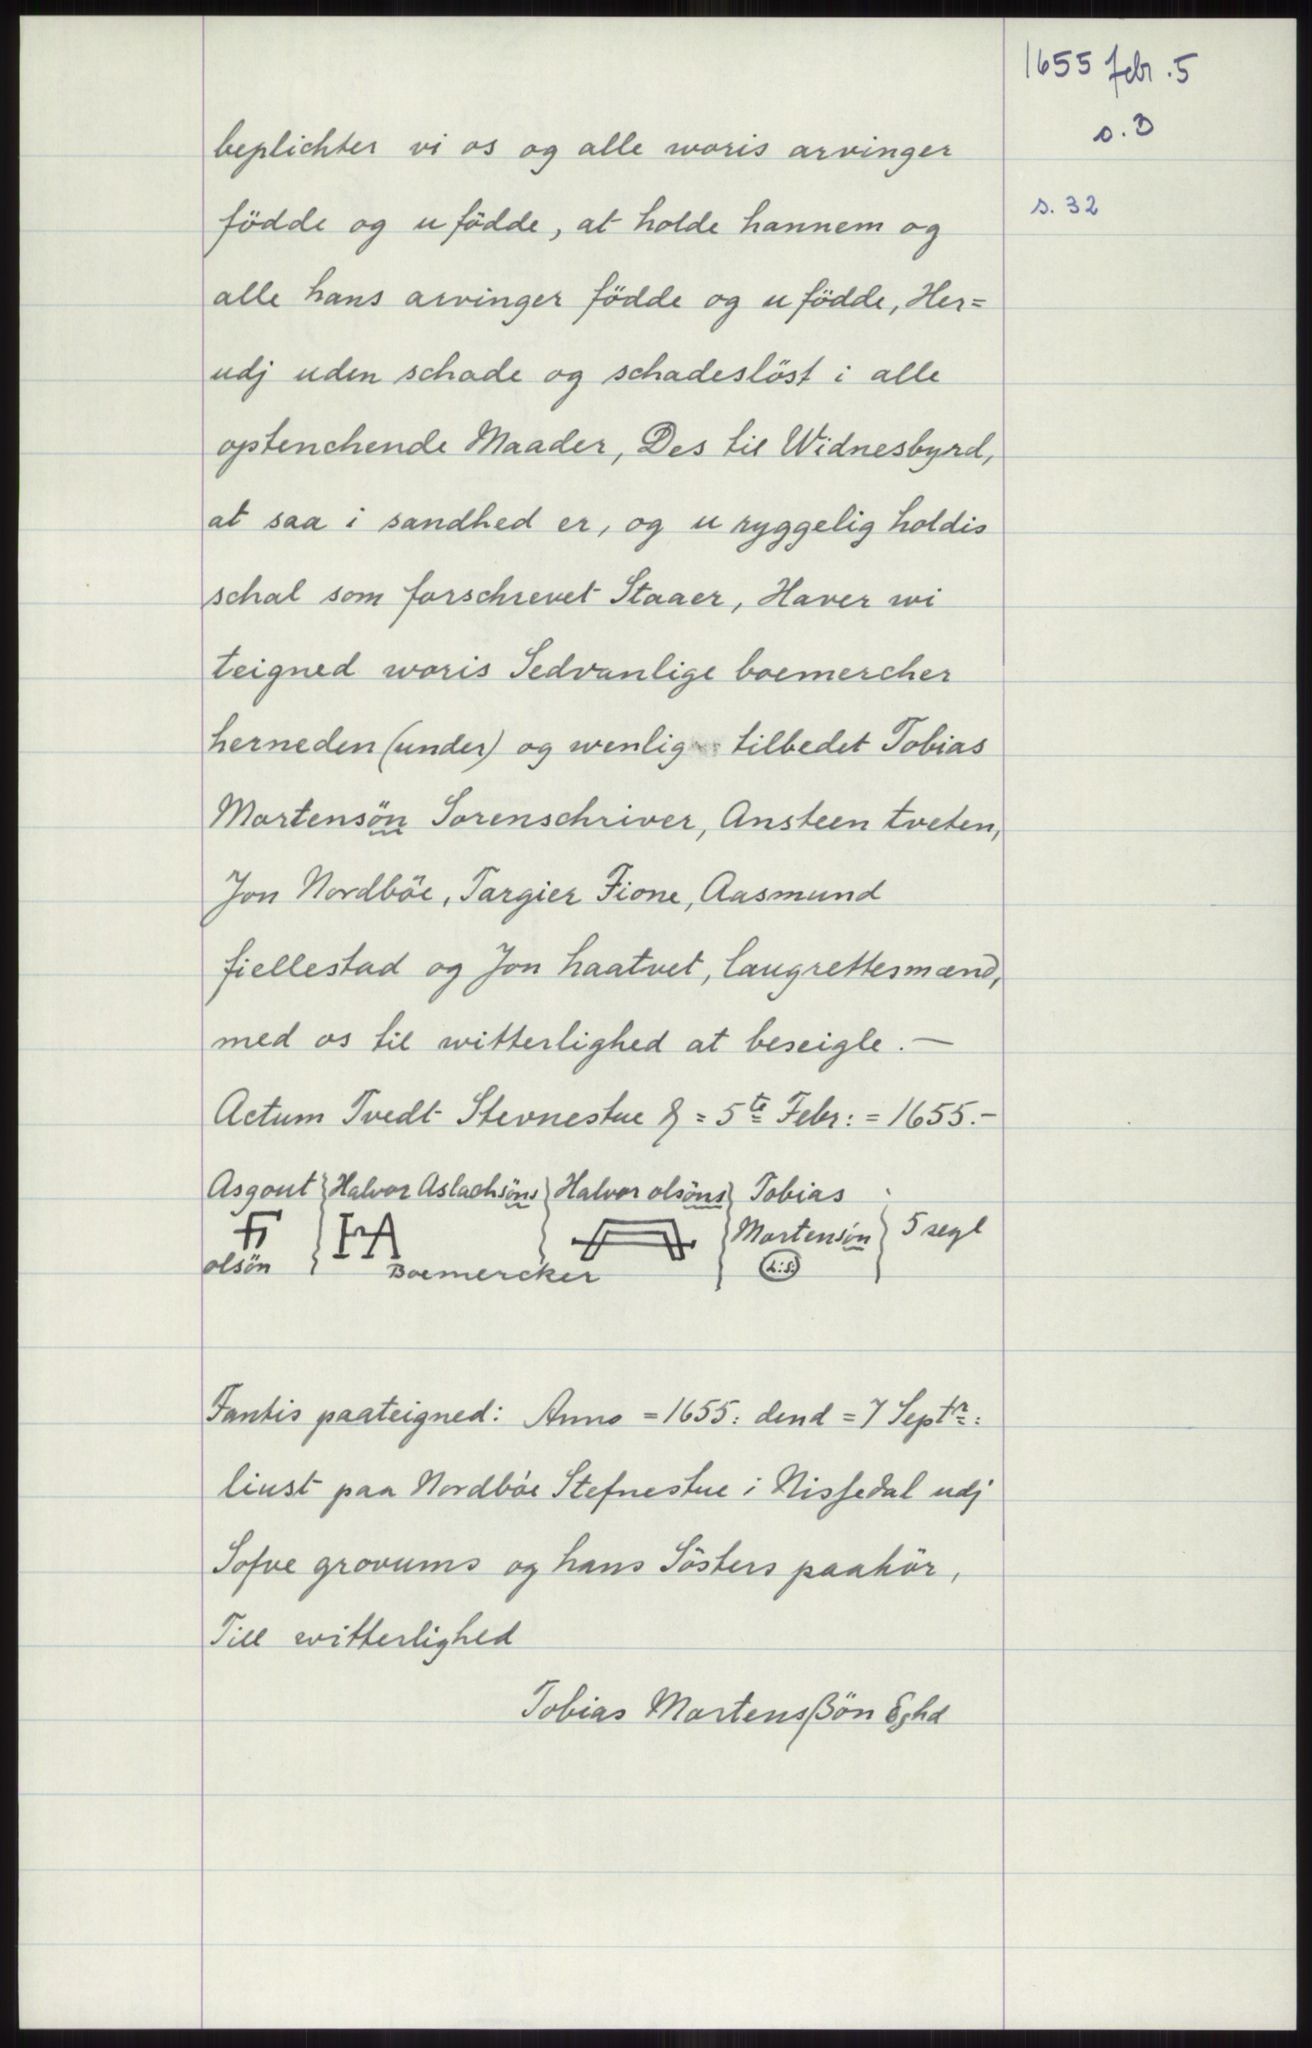 1655 febr. 5
s. 3
s. 32
beplichter vi os og alle woris arvinger
födde og u födde, at holde hannem og
alle hans arvinger födde og u födde, Her=
udj uden schade og schadeslöst i alle
optenchende Maader, Des til Widnesbyrd,
at saa i sandhed er, og u ryggelig holdis
schal som forschrevet Staaer, Haver wi
teigned woris Sedvanlige boemercher
herneden (under) og wenlig tilbedet Tobias
Mortensön Sorenschriver, Ansteen tveten,
Jon Nordböe, Targier Fione, Aasmund
fiellestad og Jon haatvet, laugrettesmænd,
med os til witterlighed at beseigle. —
Actum Tvedt Stevnestue = 5te Febr: = 1655.-
Asgout Halvor Aslachsöns Halvor olsöns Tobias
Mortensön 5 segl
olsön Boemercker L:S:
Fantis paateigned: Anno = 1655: dend = 7 Septr:
liust paa Nordböe Stefnestue i Nissedal udj
Sofve grovums og hans Sösters paahör,
Till witterlighed
Tobias Mortensßön Eghd